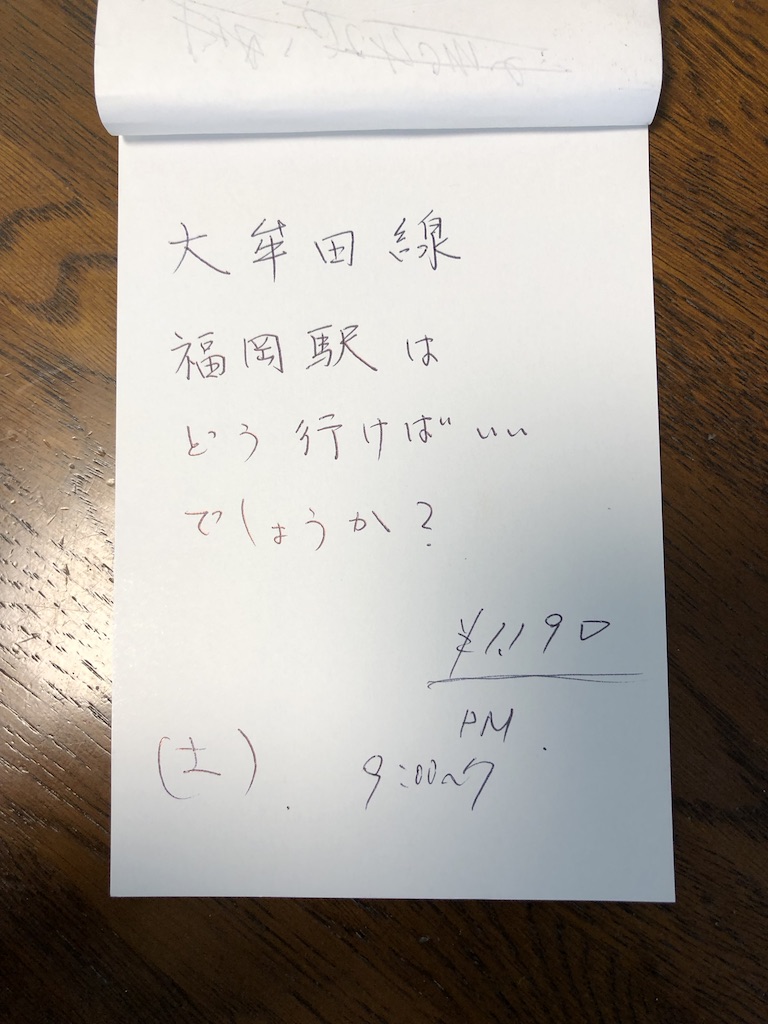 大牟田線
福岡駅は
どう行けばいい
でしょうか?
¥1,190
PM
(土) 9:00~7